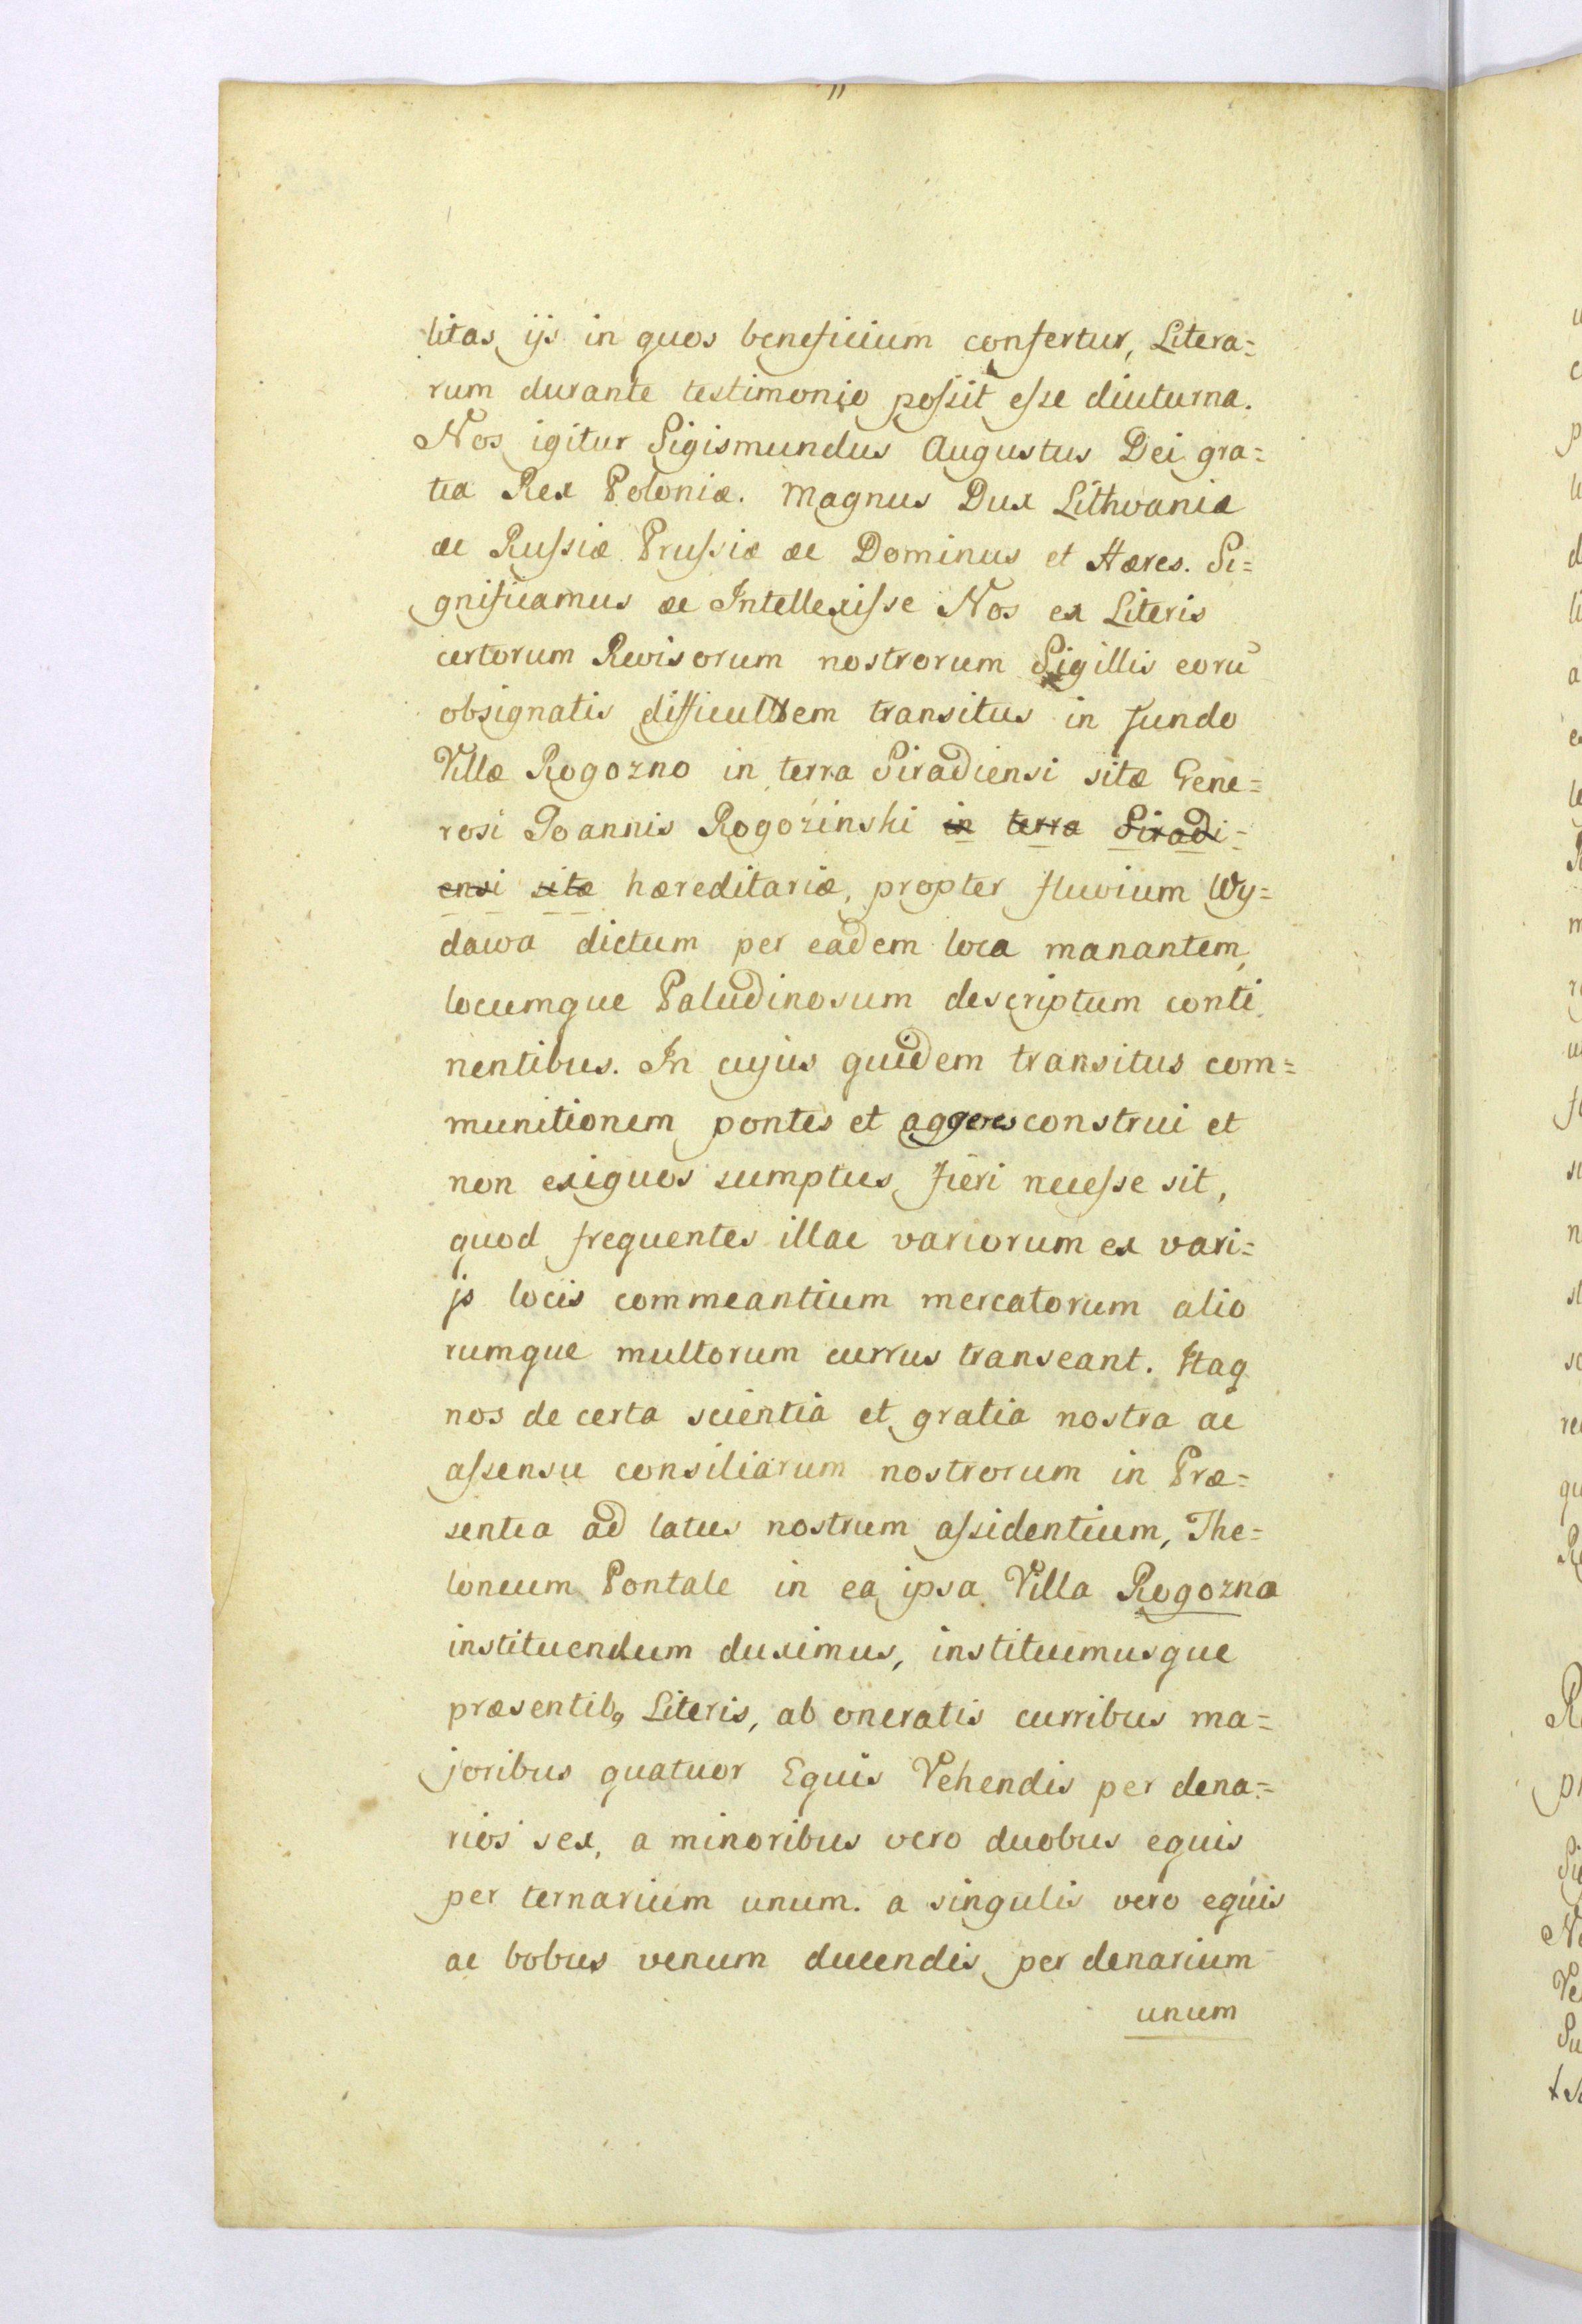 litas ijs in quos beneficium confertur, Litera=
rum durante testimonio possit esse diuturna.
Nos igitur Sigismundus Augustus Dei gra=
tia Rex Poloniæ. Magnus Dux Lithvaniæ
ac Russiæ Prussiæ ac Dominus et Hæres. Si=
gnificamus ac Intellexisse Nos ex Literis
certorum Revisorum nostrorum Sigillis eorū
obsignatis difficultem transitus in fundo
Villæ Rogozno in terra Siradiensi sitæ Gene=
rosi Joannis Rogoźinski in terra Siradi=
ensi sitæ hæreditariæ, propter fluvium Wy=
dawa dictum per eadem loca manantem,
locumque Paludinosum descriptum conti
nentibus. In cujus quidem transitus com=
munitionem pontes et aggeres construi et
non exiguos sumptus fieri necesse sit,
quod frequentes illac variorum ex vari=
js locis commeantium mercatorum alio
rumque multorum currus transeant. Itaq
nos de certa scientia et gratia nostra ac
assensu consiliarum nostrorum in Præ=
sentia ad latus nostrum assidentium, The=
loneum Pontale in ea ipsa Villa Rogozna
instituendum duximus, instituimusque
præsentibꝰ Literis, ab oneratis curribus ma=
joribus quatuor Equis Vehendis per dena=
rios sex, a minoribus vero duobus equis
per ternarium unum. a singulis vero equis
ac bobus venum ducendis per denarium
unum